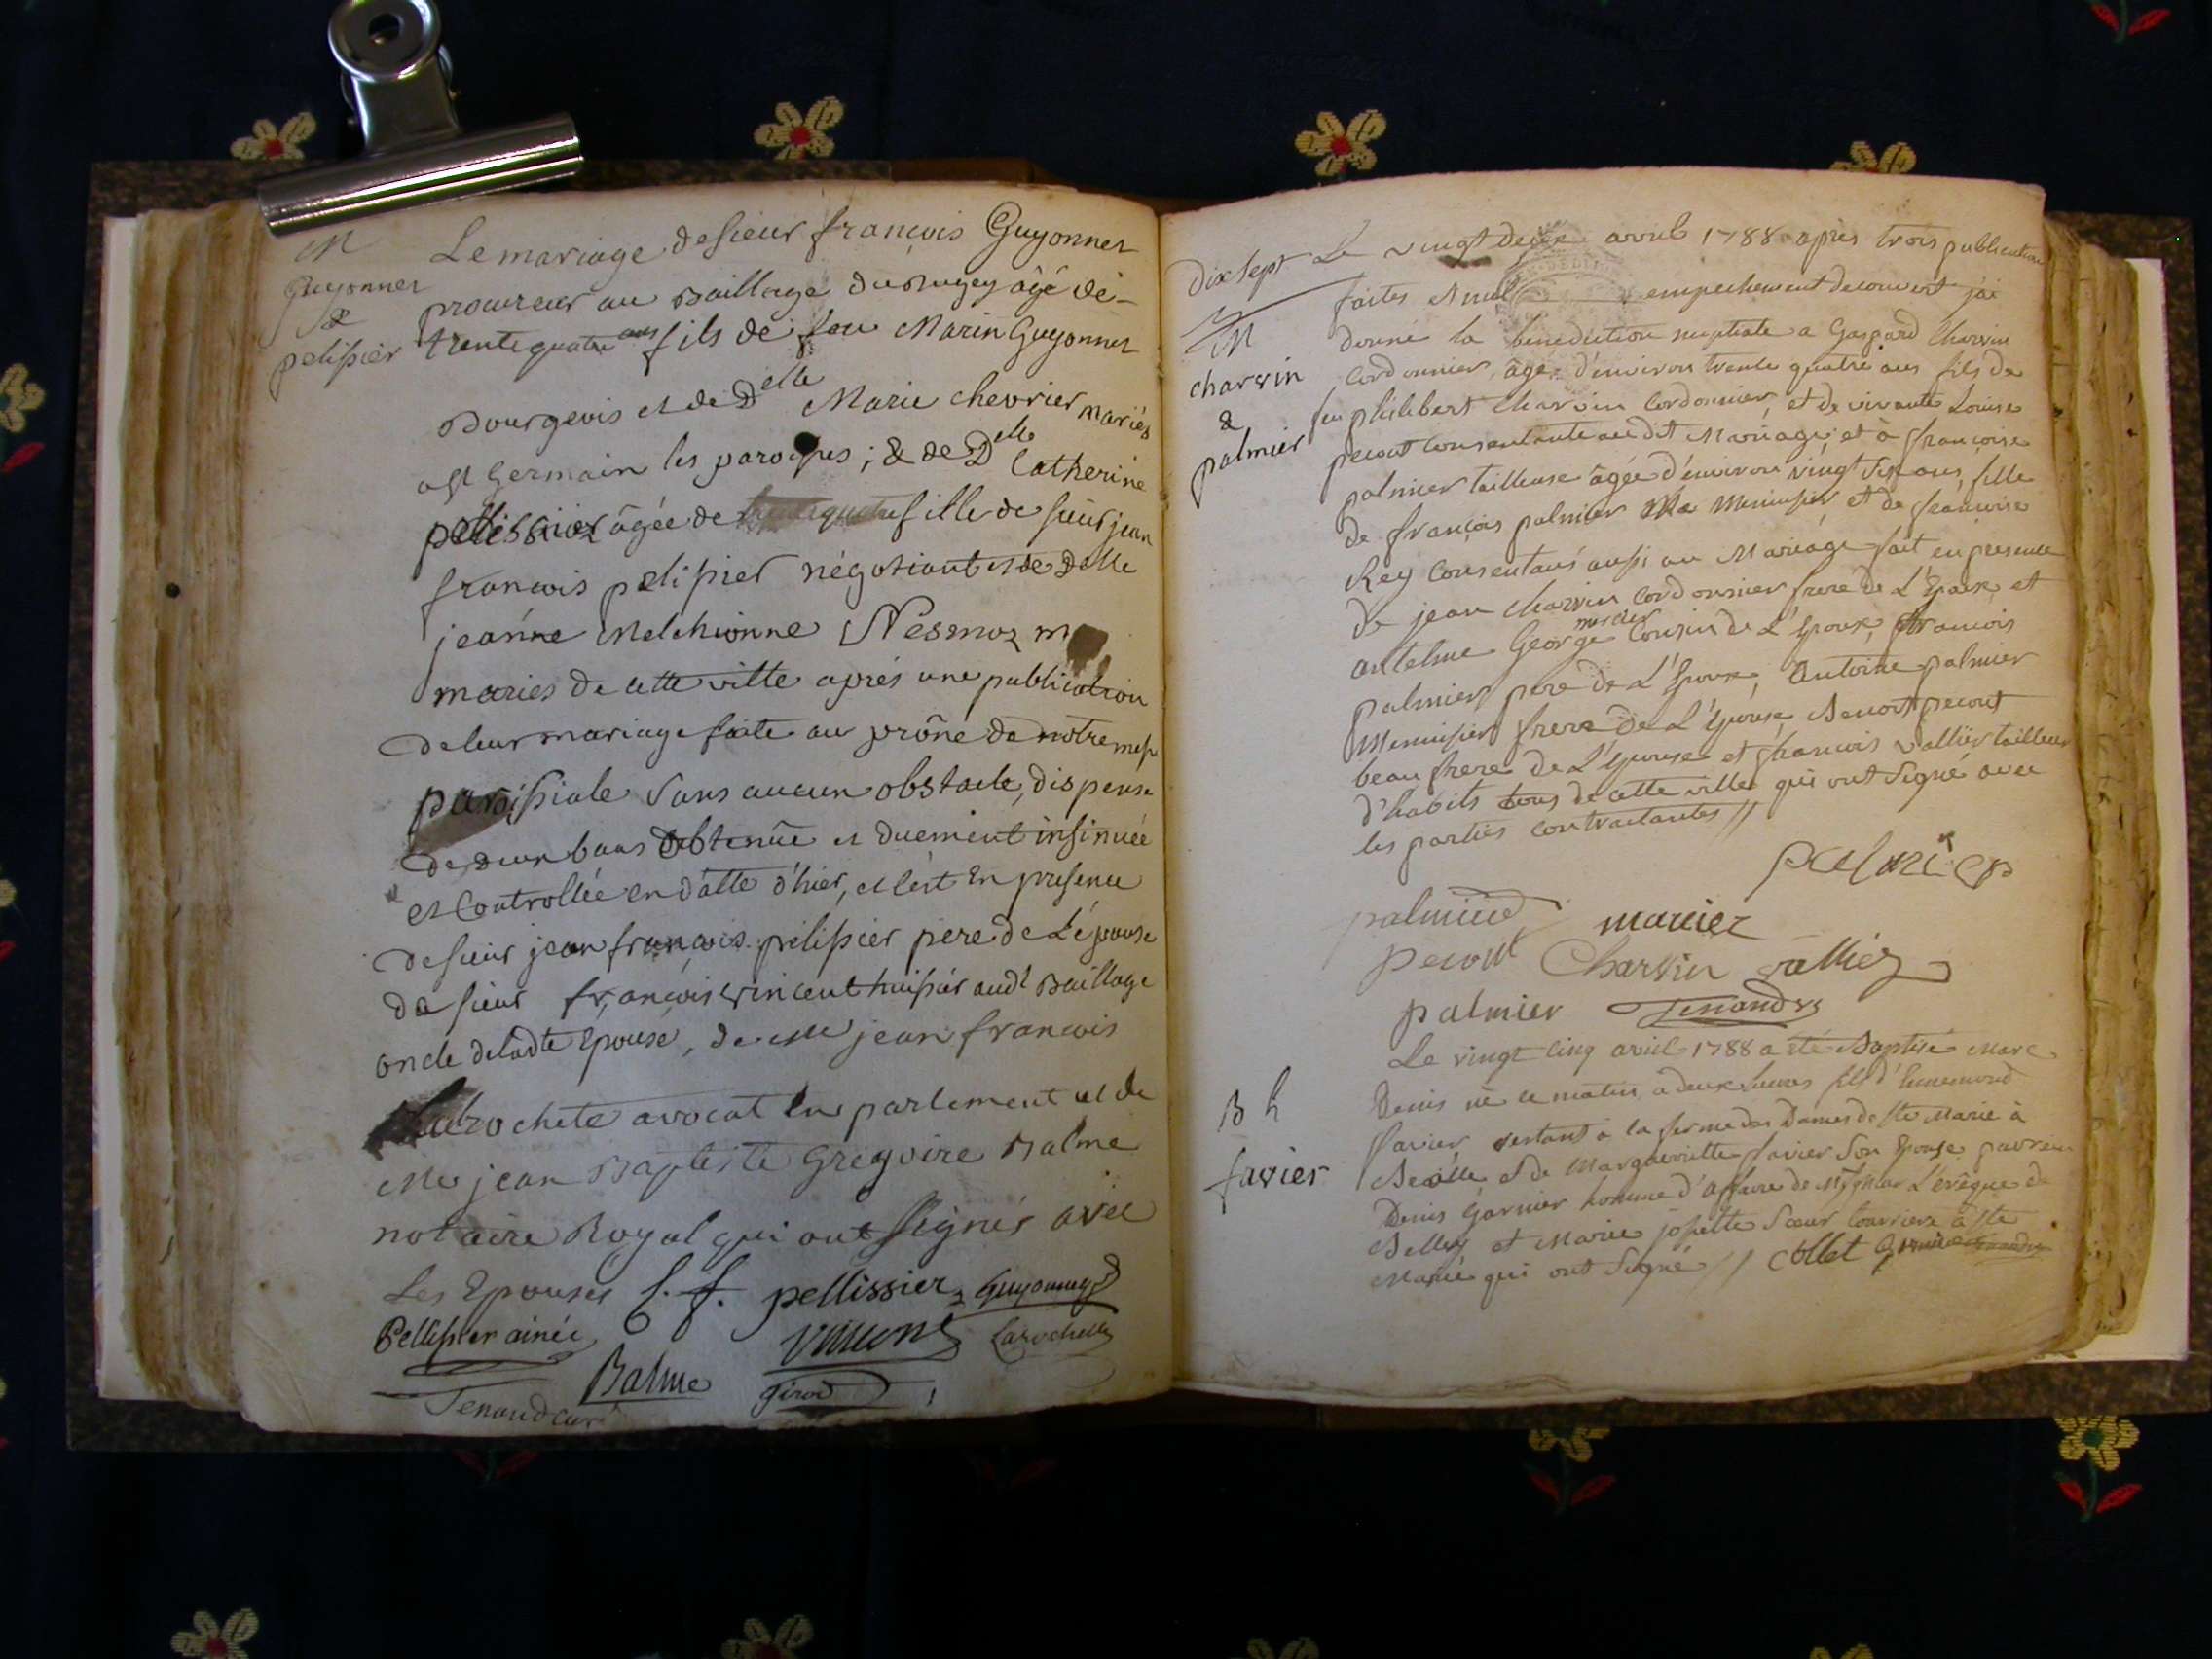 M
Guyonnet
&
pelissier
Le mariage de sieur francois Guyonnet
procureur au Baillage du Bugey âgé de
trente quatre ans fils de feu Marin Guyonnet
Bourgeois et de Delle Marie chevrier mariés
a st Germain les paroisses ; & de Delle Catherine
pellissier âgée de fille de sieur jean
francois pelissier négotiant et de Delle
jeanne Melchionne Nesmoz
mariés de cette ville aprés une publication
de leur mariage faite au prône de notre messe
paroissiale sans aucun obstacle, dispense
de deux bans obtenüe et duement insinuée
et Controllée en datte d'hier, et c'est En presence
de sieur jean francois pelissier pere de L'épouse
de sieur francois vincent huissier audt Baillage
oncle deladte Epouse, de Me jean francois
Larochete avocat en parlement et de
Me jean Baptiste Gregoire Balme
notaire Royal qui ont signés avec
Les Epouses J. f. pellissier Guyonnet
Pellissier ainée Vincent Larochette
Balme Girod
Tenand curé
dix sept
M
charvin
&
palmier
Le vingt deux avril 1788 après trois publication
faites et nul empechement decouvert j'ai
donné la benediction nuptiale a Gaspard Charvin
Cordonnier, âgé d'environ trente quatre ans fils de
feu philibert Charvin Cordonnier, et de vivante Louise
pecout consentante audit Mariage, et à francoise
palmier tailleuse âgée d'environ vingt six ans, fille
de françois palmier Me Menuisier et de francoise
Rey Consentans aussi au Mariage fait en presence
de jean Charvin Cordonnier frere de L'Epoux, et
mercier
antelme George Cousin de L'Epoux, francois
palmier pere de L'Epouse, Antoine palmier
Menuisier frere de L'Epouse, Benoit pecout
beau frere de L'Epouse et francois vallier tailleur
d'habits tous de cette ville qui ont Signé avec
les parties contractantes //
palmier
palmier marcier
pecout Charvin vallier
palmier Tenand
B
favier
Le vingt cinq avril 1788 a été Baptisé Marc
Denis né ce matin a deux heures fils d'Ennemond
favier restant à la ferme des Dames de Ste Marie à
et de Margueritte favier Son Epouse parrein
Denis Garnier homme d'affaire de L'évêque de
Belley et Marie josette Sœur tourriere à Ste
Marie qui ont Signé // Collet